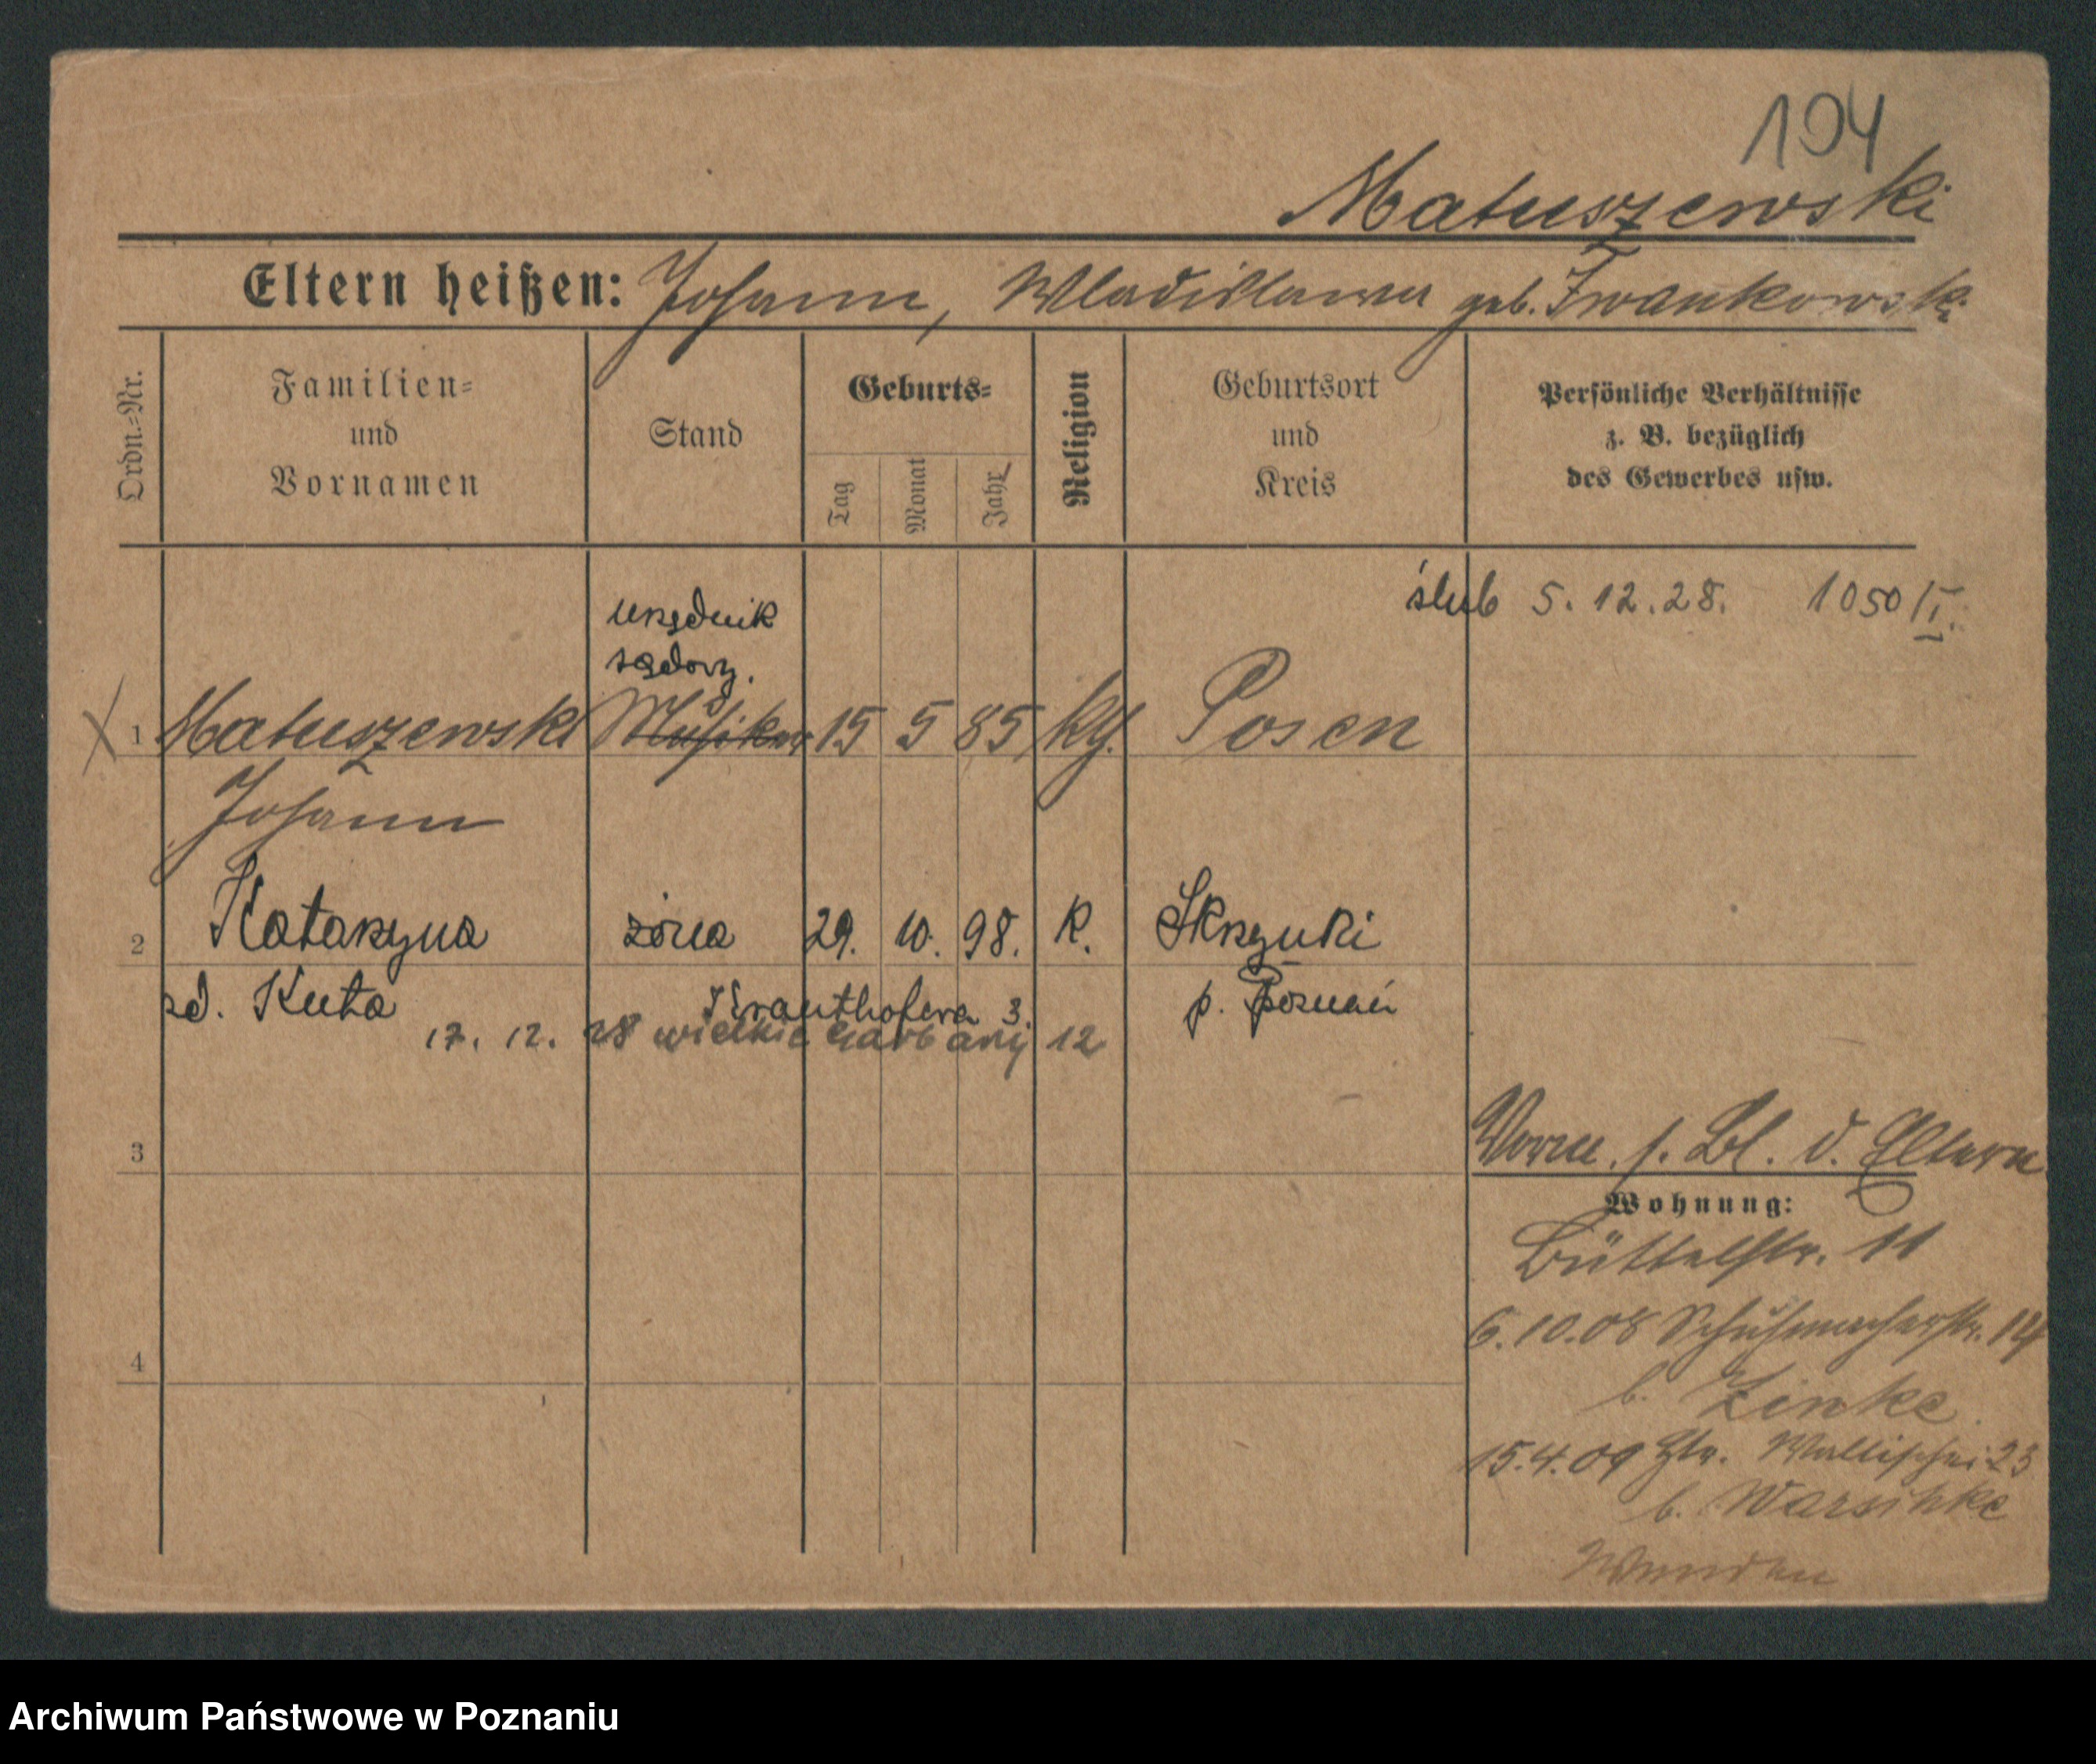 104
Matuszewski
Eltern heißen: Johann, Wladislawa geb. Iwankowski
Ordn.-Nr.
Familien- und Vornamen
Stand
Geburts-
Tag
Monat
Jahr
Religion
Geburtsort und Kreis
Persönliche Verhältnisse
z. B. bezüglich
des Gewerbes usw.
ślub 5.12.28. 1050/I.
urzędnik
sądowy.
1 Matuszewski Musiker 15 5 85 kth. Posen
Johann
2 Katarzyna żona 29. 10. 98. k. Skrzynki
zd. Kuta p. Poznań
Krauthofera 3.
17. 12. 28 wielkie Garbary 12
3
Vorne s. Bl. d. Eltern
Wohnung:
Büttelstr. 11
6.10.08 Schuhmacherstr. 14
4
b. Zinke
15.4.09 Wallischei 23
b. Warsinke
Archiwum Państwowe w Poznaniu